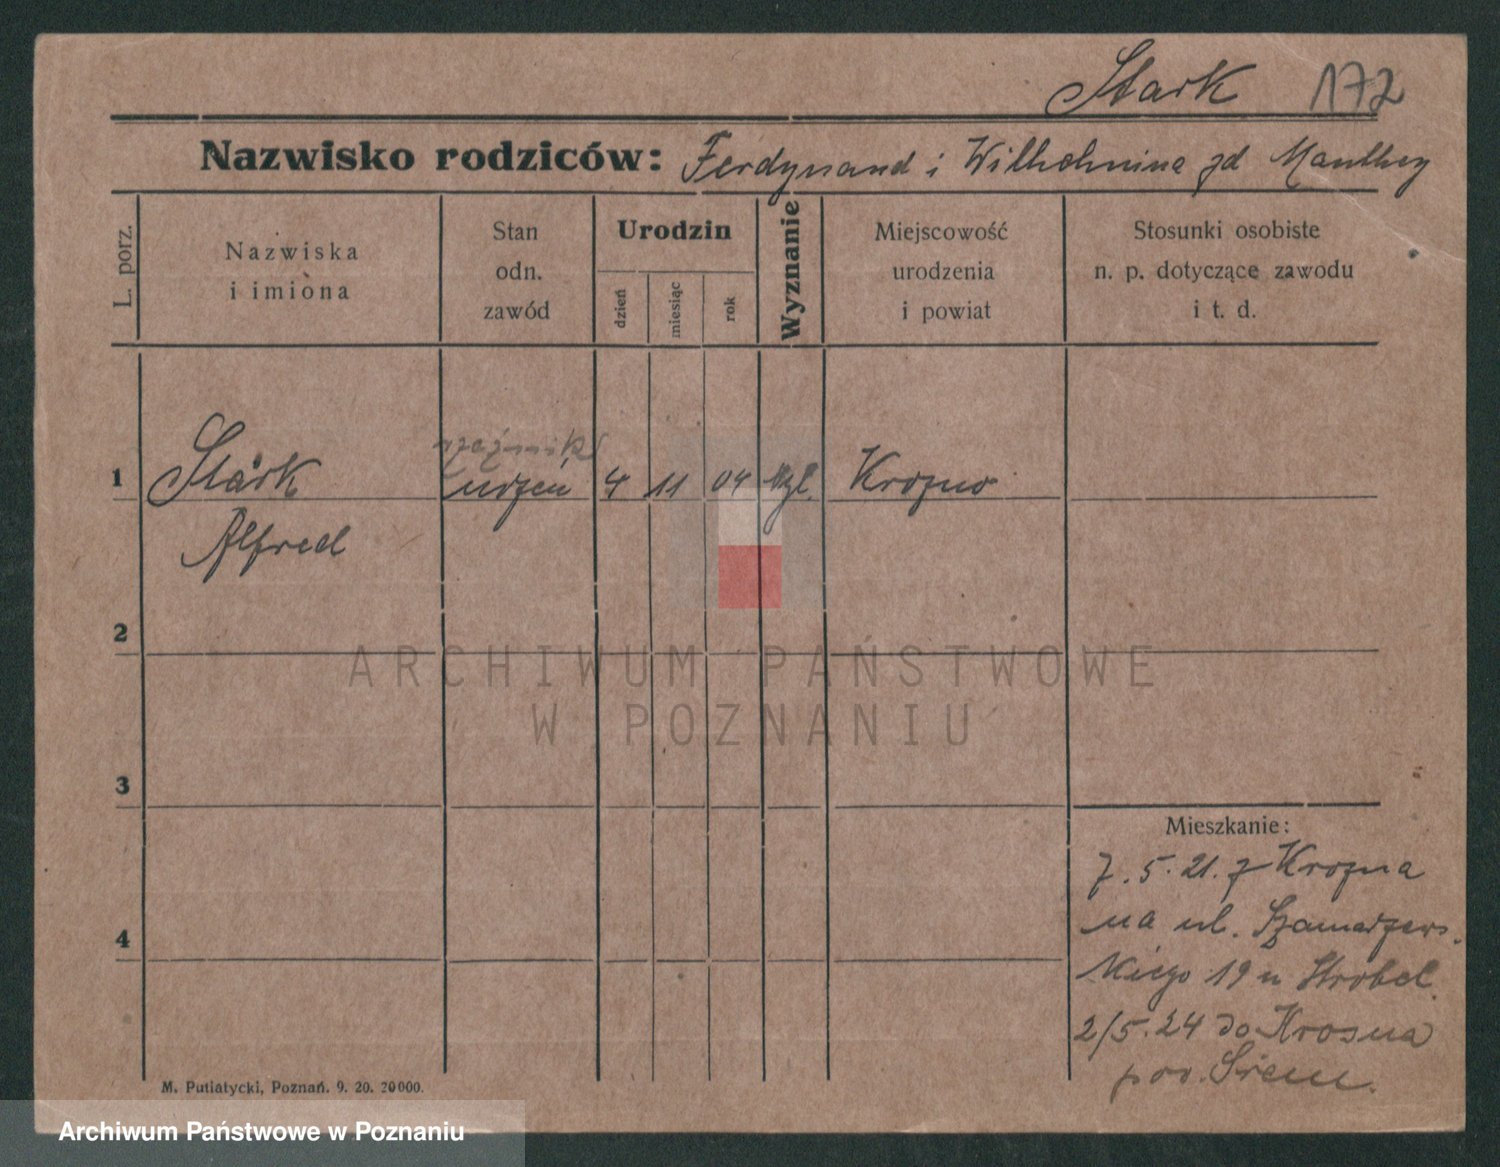 Stark 172
Nazwisko rodziców: Ferdynand i Wilhelmina zd Manthey
L. porz.
Nazwiska
i imiona
Stan
odn.
zawód
Urodzin
dzień
miesiąc
rok
Wyznanie
Miejscowość
urodzenia
i powiat
Stosunki osobiste
n. p. dotyczące zawodu
i t. d.
rzeźnik
1 Stark uczeń 4 11 04 Krozno
Alfred
2
3
4
Mieszkanie:
7. 5. 21. z Krozna
na ul. Szamarzews.
kiego 19 u Strobel.
2/5. 24 do Krosna
pow. Śrem.
M. Putiatycki, Poznań. 9. 20. 20000.
ARCHIWUM PAŃSTWOWE
W POZNANIU
Archiwum Państwowe w Poznaniu